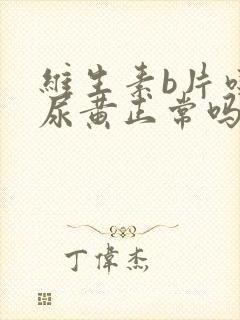 維生素b片吃
尿黄正常吗
丁偉杰